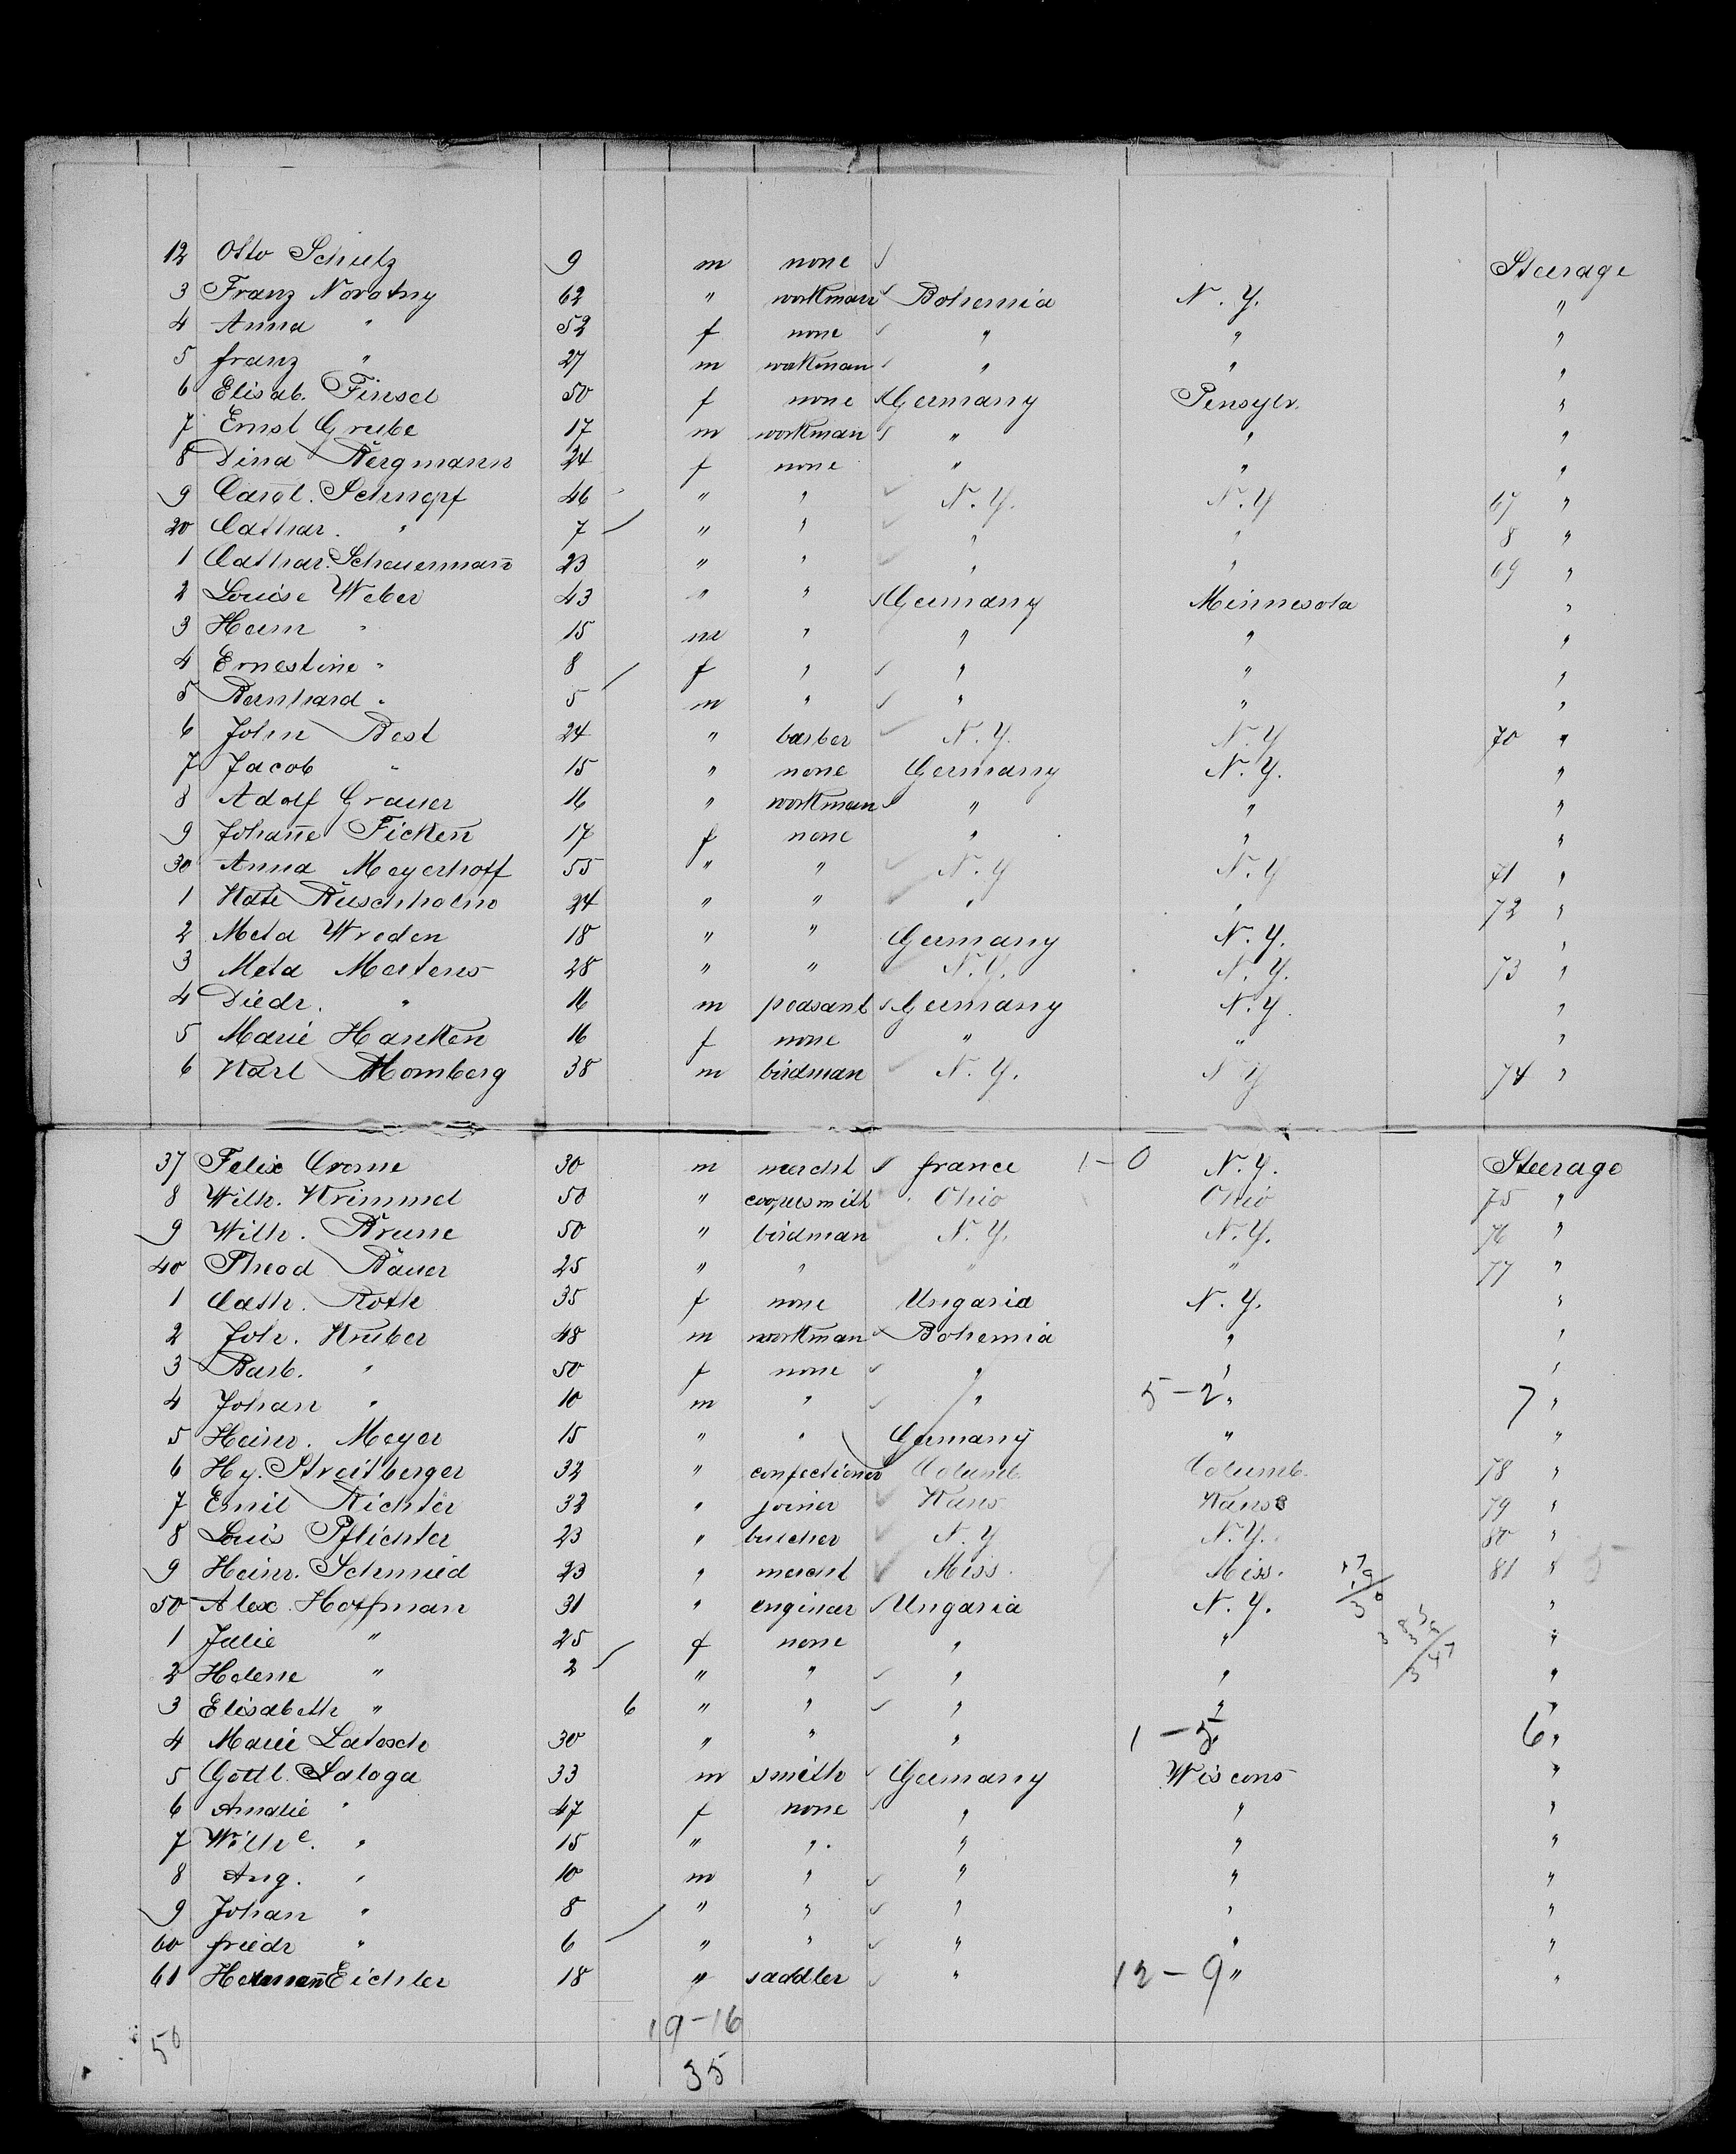 12 Otto Schutz 9 m none Steerage
3 Franz Novotny 62 " workman Bohemia N. Y. "
4 Anna " 52 f none " " "
5 franz " 27 m workman " " "
6 Elisab. Finsel 50 f none Germany Pensylv. "
7 Ernst Grube 17 m workman " " "
8 Dina Bergmann 24 f none " " "
9 Carol. Schnepf 46 " " N. Y. N. Y 67 "
20 Cathar. " 7 " " " " 8 "
1 Cathar. Scheuermañ 23 " " " " 69 "
2 Louise Weber 43 " " Germany Minnesota "
3 Herm " 15 m " " " "
4 Ernestine " 8 f " " " "
5 Bernhard " 5 m " " " "
6 John Best 24 " barber N. Y. N. Y 70 "
7 Jacob " 15 " none Germany N. Y. "
8 Adolf Grauer 16 " workman " " "
9 Johañe Ficken 17 f none " " "
30 Anna Meyerhoff 55 " " N. Y N. Y 71 "
1 Kate Buschholm 24 " " " " 72 "
2 Meta Wreden 18 " " Germany N. Y. "
3 Meta Mertens 28 " " N. Y. N. Y. 73 "
4 Diedr. " 16 m peasant Germany N. Y. "
5 Marie Hanken 16 f none " " "
6 Karl Homberg 38 m birdman N. Y. N Y 74 "
37 Felix Crome 30 m mercht france 1-0 N. Y. Steerage
8 Wilh. Krimmel 50 " coopersmith Ohio Ohio 75 "
9 Wilh. Brune 50 " birdman N. Y. N. Y. 76 "
40 Theod Bauer 25 " " " " 77 "
1 Cath. Roth 35 f none Ungaria N. Y. "
2 Joh. Kruber 48 m workman Bohemia " "
3 Barb. " 50 f none " " "
4 Johan " 10 m " " 5-2 " 7 "
5 Heinr. Meyer 15 " " Germany " "
6 Hy. Streitberger 32 " confectioner Columb. Columb. 78 "
7 Emil Richter 32 " joiner Kans Kans 79 "
8 Louis Pflichter 23 " butcher N. Y N. Y. 80 "
9 Heinr. Schmied 23 " mercht Miss. Miss. 81 "
50 Alex. Hoffman 31 " engineer Ungaria N. Y. "
1 Julie " 25 f none " " "
2 Helene " 2 " " " " "
3 Elisabeth " 6 " " " " "
4 Marie Latosch 30 " " " 1-5 " 6 "
5 Gottl. Saloga 33 m smith Germany Wiscons "
6 Amalie " 47 f none " " "
7 Wilhe. " 15 " " " " "
8 Aug. " 10 m " " " "
9 Johan " 8 " " " " "
60 friedr " 6 " " " " "
61 Hermañ Eichler 18 " saddler " 12-9 " "
19-16
50
35